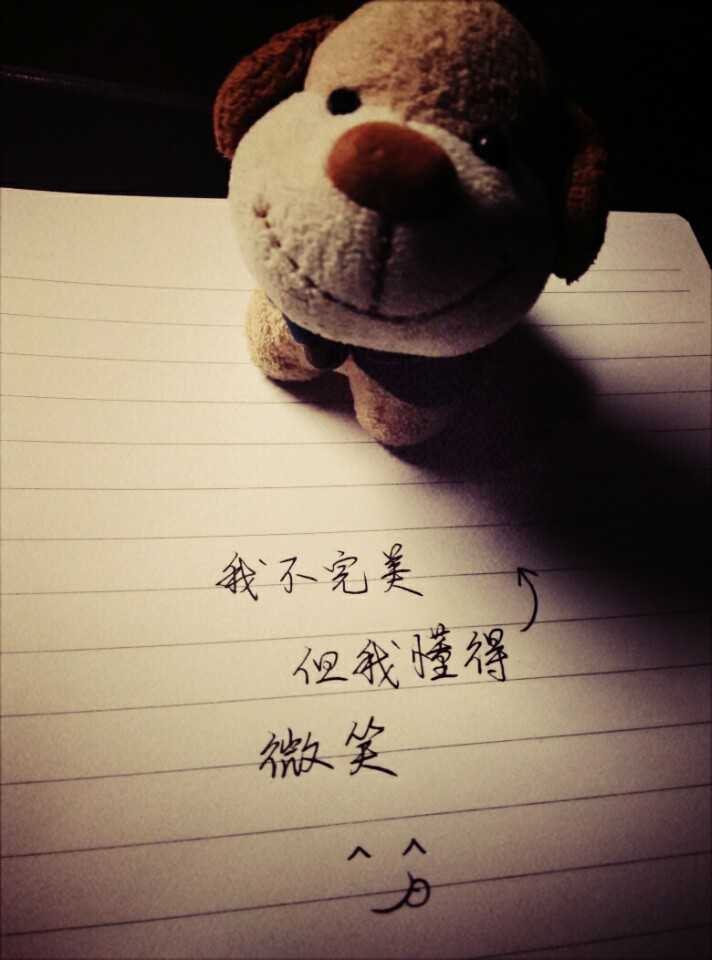 我不完美
但我懂得
微笑